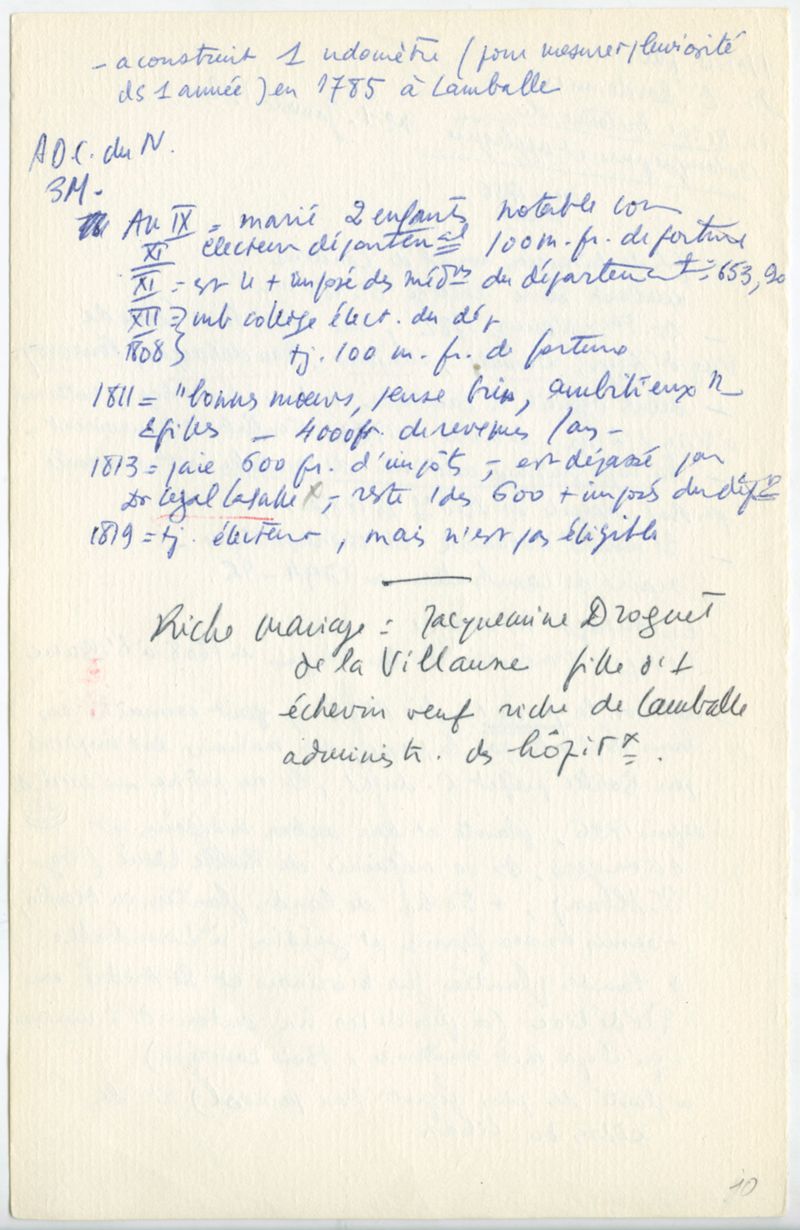 - a construit 1 udomètre (pour mesurer pluviosité
ds 1 année) en 1785 à Lamballe
ADC. du N.
3M.
An IX = marié 2 enfants notable com
XI électeur départemal 100 m. fr. de fortune
XI = est le + imposé des médns du département = 653,90
XII = mb collège élect. du dép
1808 tj. 100 m. fr. de fortune
1811 = "bonnes mœurs, pense bien, ambitieux"
2 filles - 4000 fr. de revenus / an -
1813 = paie 600 fr. d'impôts, = est dépassé par
Dr Legal Lasalle x, = reste 1 des 600 + imposés du dépt
1819 = tj. électeur, mais n'est pas éligible
Riche mariage = Jacquemine Droguet
de la Villaune fille d'1
échevin veuf riche de Lamballe
administr. des hôpitx.
10